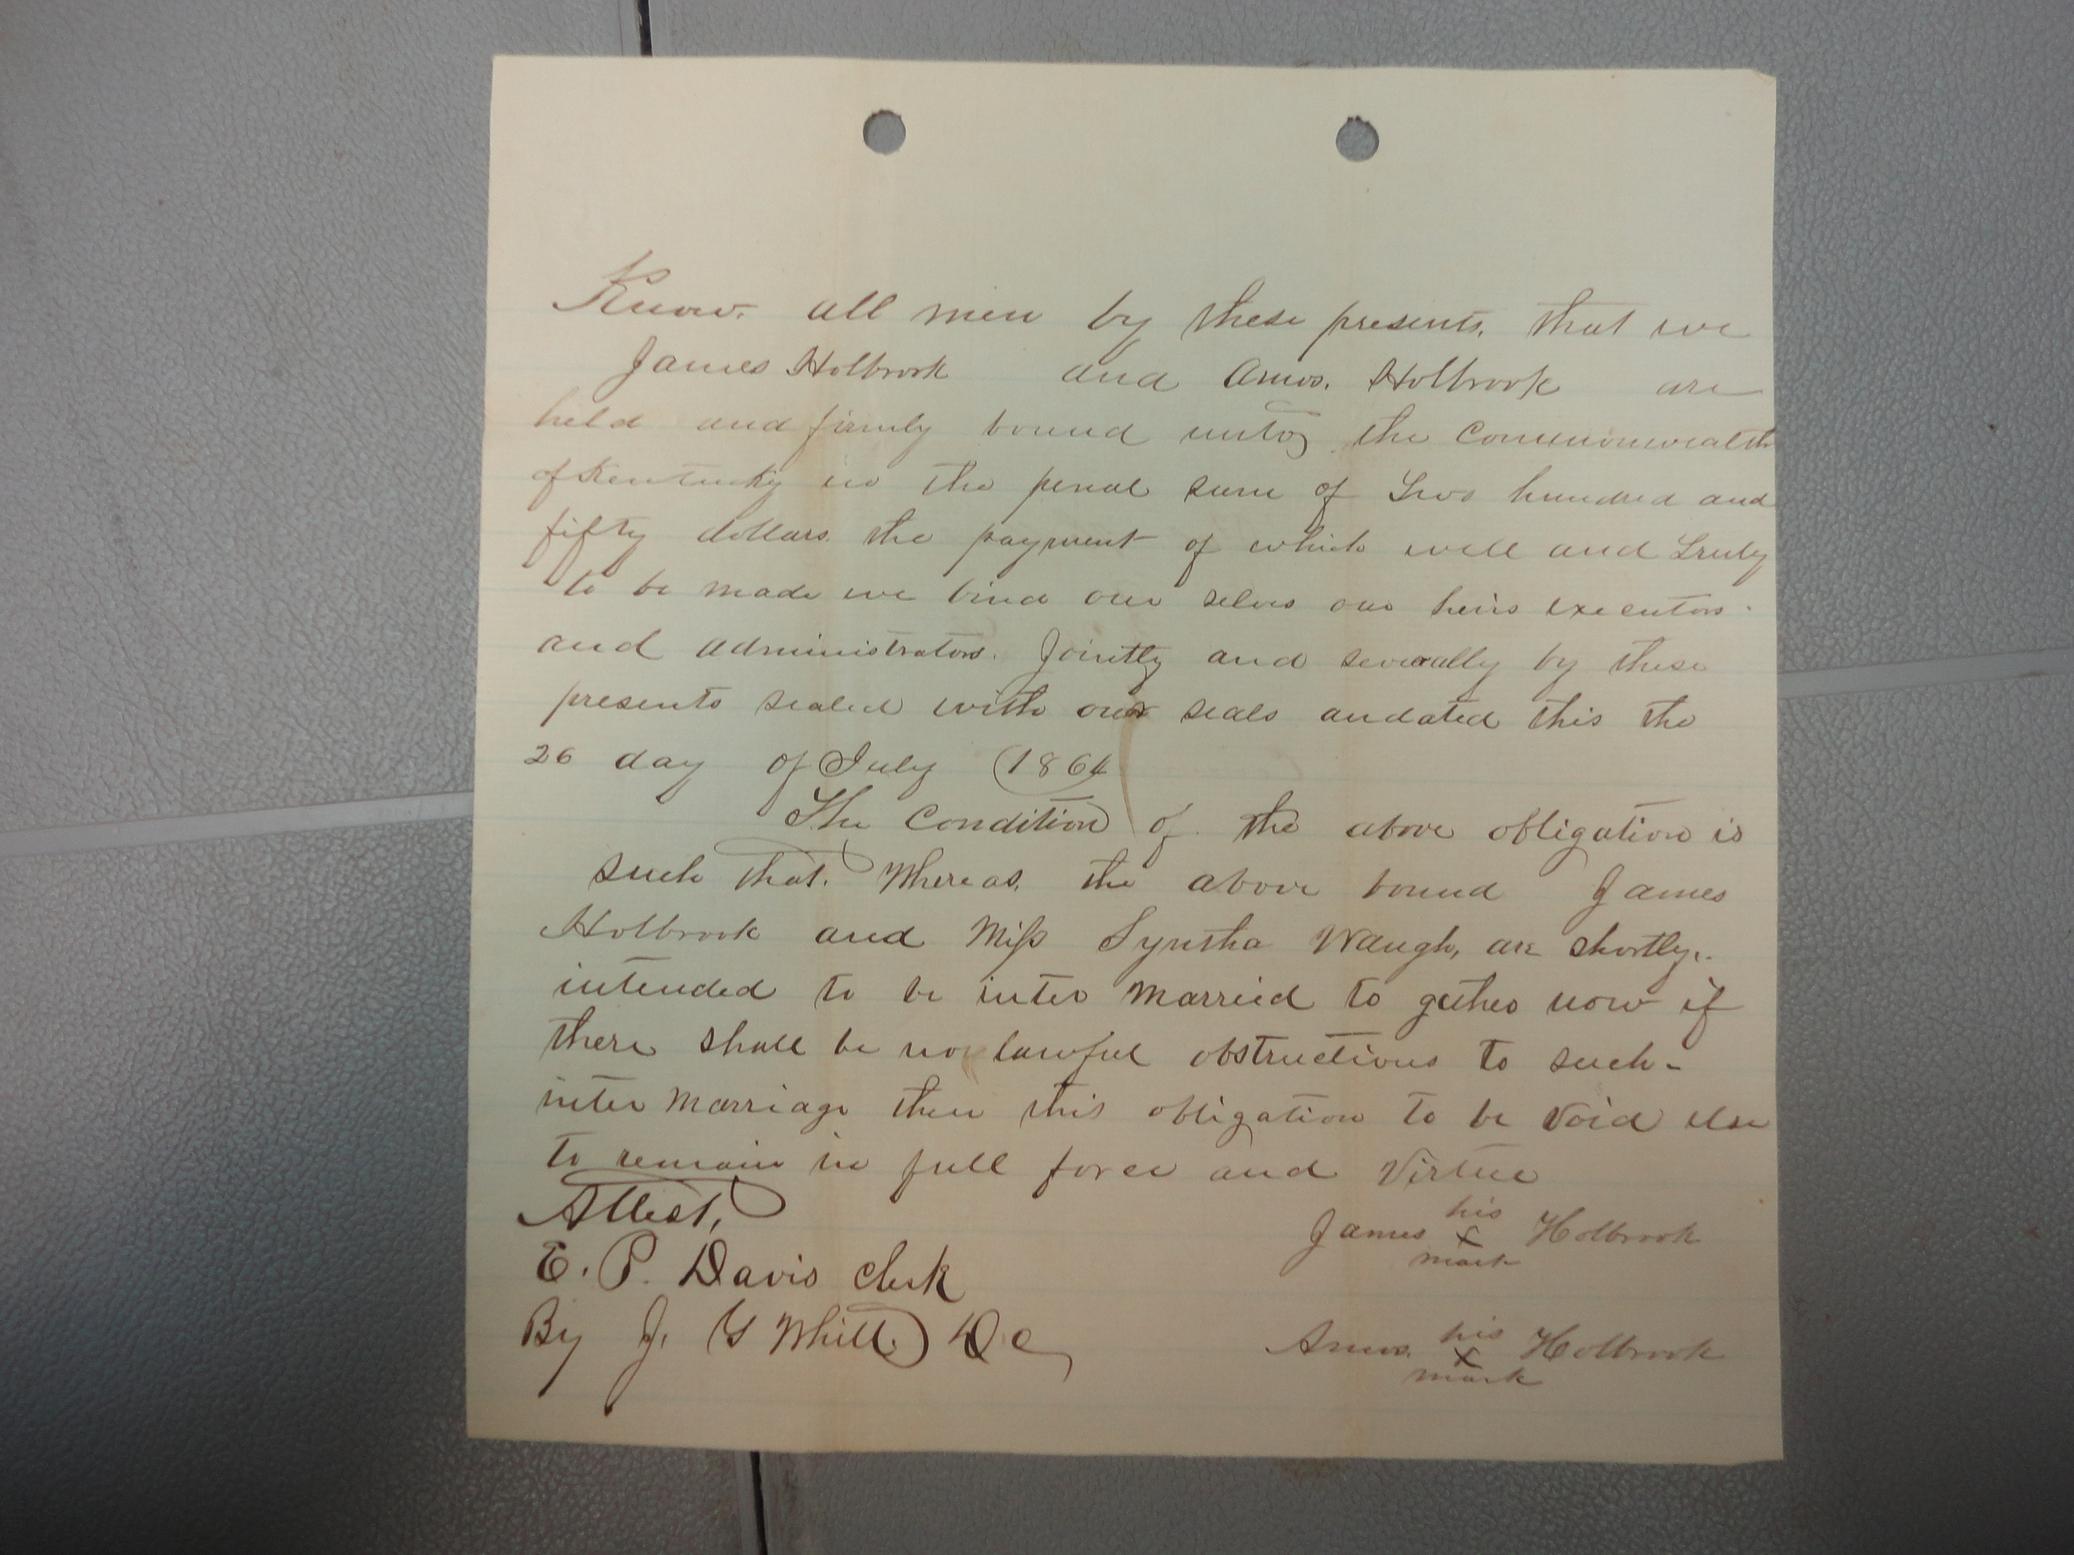 Know. all men by these presents, that we
James Holbrook and Amos. Holbrook are
held and firmly bound unto the Commonwealth
of Kentucky in the penal sum of Two hundred and
fifty dollars. the payment of which well and truly
to be made we bind our selves our heirs executors
and administrators. Jointly and severally by these
presents sealed with our seals andated this the
26 day of July 1864
The Condition of the above obligation is
such that. Whereas. the above bound James
Holbrook and Miss Syntha Waugh, are shortly.
intended to be inter Married to gether now if
there shall be no lawful obstructions to such-
inter Marriage then this obligation to be Void else
to remain in full force and Virtue
Attest,
James his x mark Holbrook
E. P. Davis Clerk
By J. G Whitt D C
Amos. his x mark Holbrook